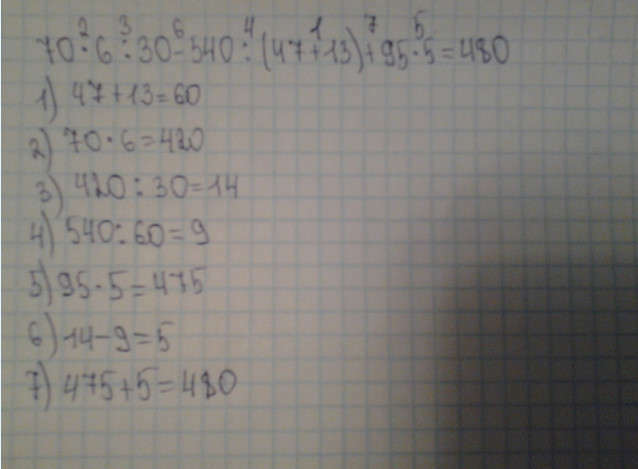 2 3 6 4 1 7 5
70·6:30-540:(47+13)+95·5=480
1) 47+13=60
2) 70·6=420
3) 420:30=14
4) 540:60=9
5) 95·5=475
6) 14-9=5
7) 475+5=480